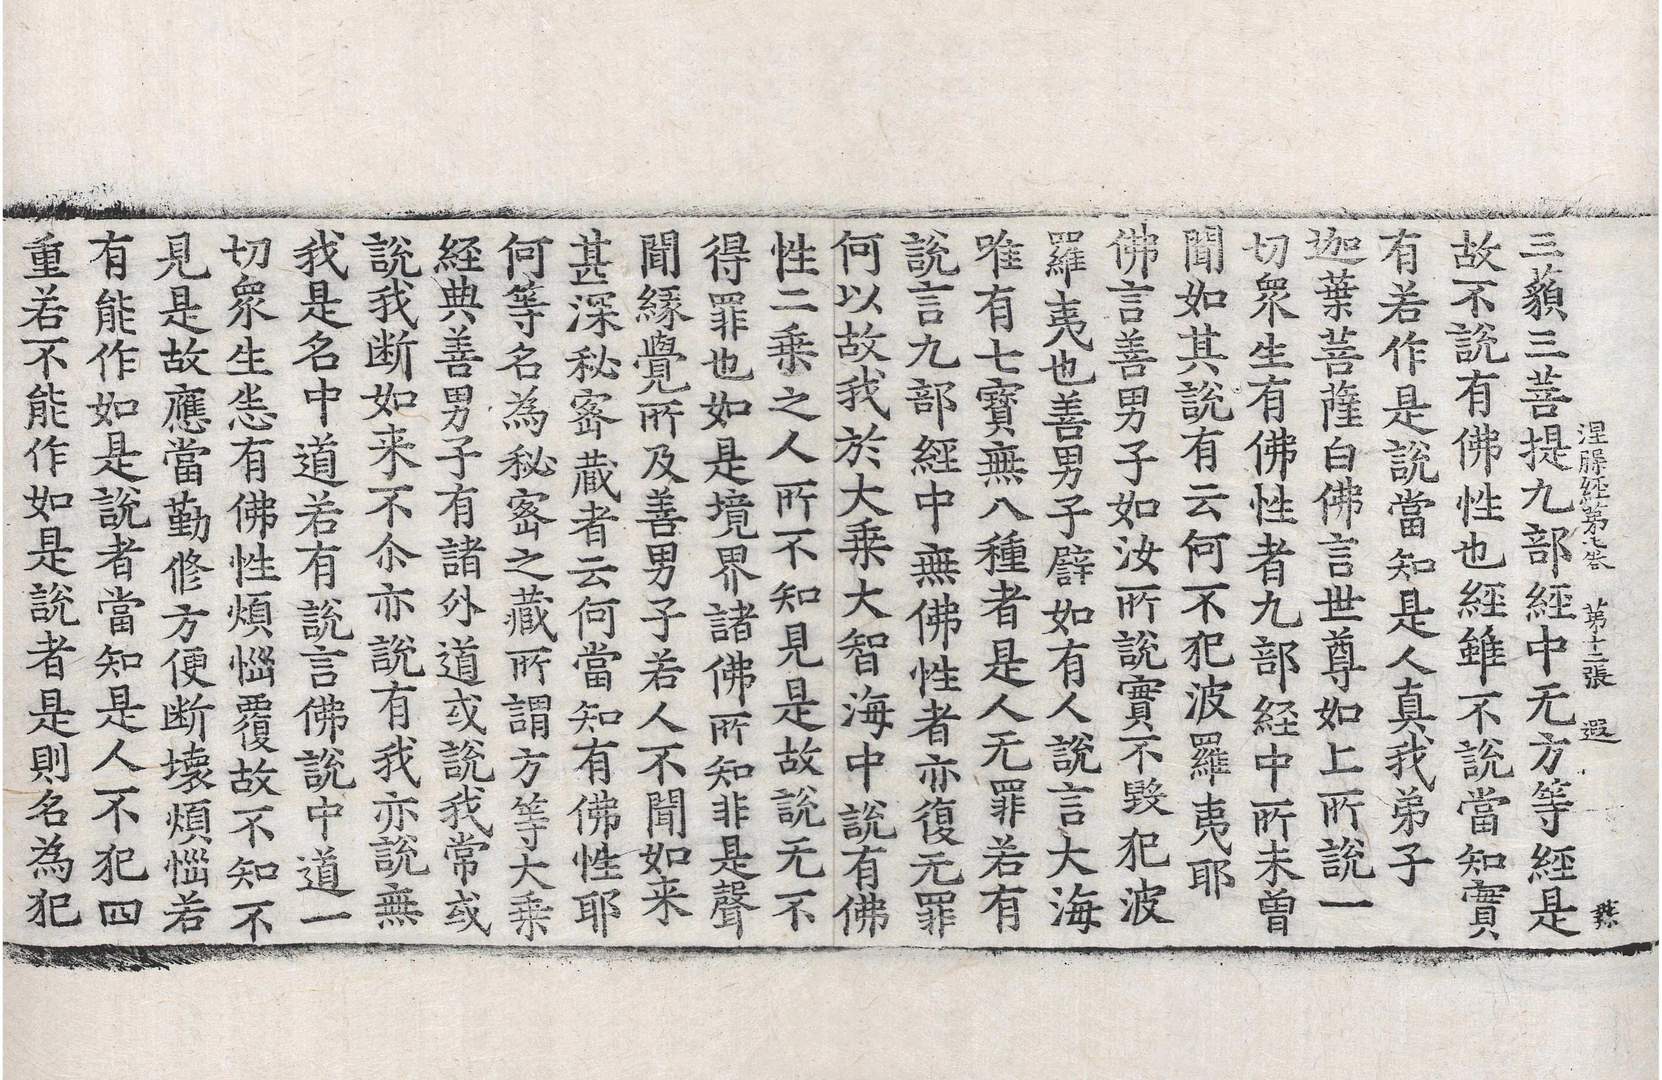 涅槃經第七卷 第十二張 遐
三藐三菩提九部經中无方等經是
故不說有佛性也經雖不說當知實
有若作是說當知是人真我弟子
迦葉菩薩白佛言世尊如上所說一
切衆生有佛性者九部經中所未曾
聞如其說有云何不犯波羅夷耶
佛言善男子如汝所說實不毀犯波
羅夷也善男子譬如有人說言大海
唯有七寳無八種者是人无罪若有
說言九部經中無佛性者亦復无罪
何以故我於大乗大智海中說有佛
性二乗之人所不知見是故說无不
得罪也如是境界諸佛所知非是聲
聞縁覺所及善男子若人不聞如来
甚深秘宻蔵者云何當知有佛性耶
何等名為秘宻之藏所謂方等大乗
經典善男子有諸外道或說我常或
說我断如来不尒亦說有我亦說無
我是名中道若有說言佛說中道一
切衆生悉有佛性煩惱覆故不知不
見是故應當勤修方便断壞煩惱若
有能作如是說者當知是人不犯四
重若不能作如是說者是則名為犯